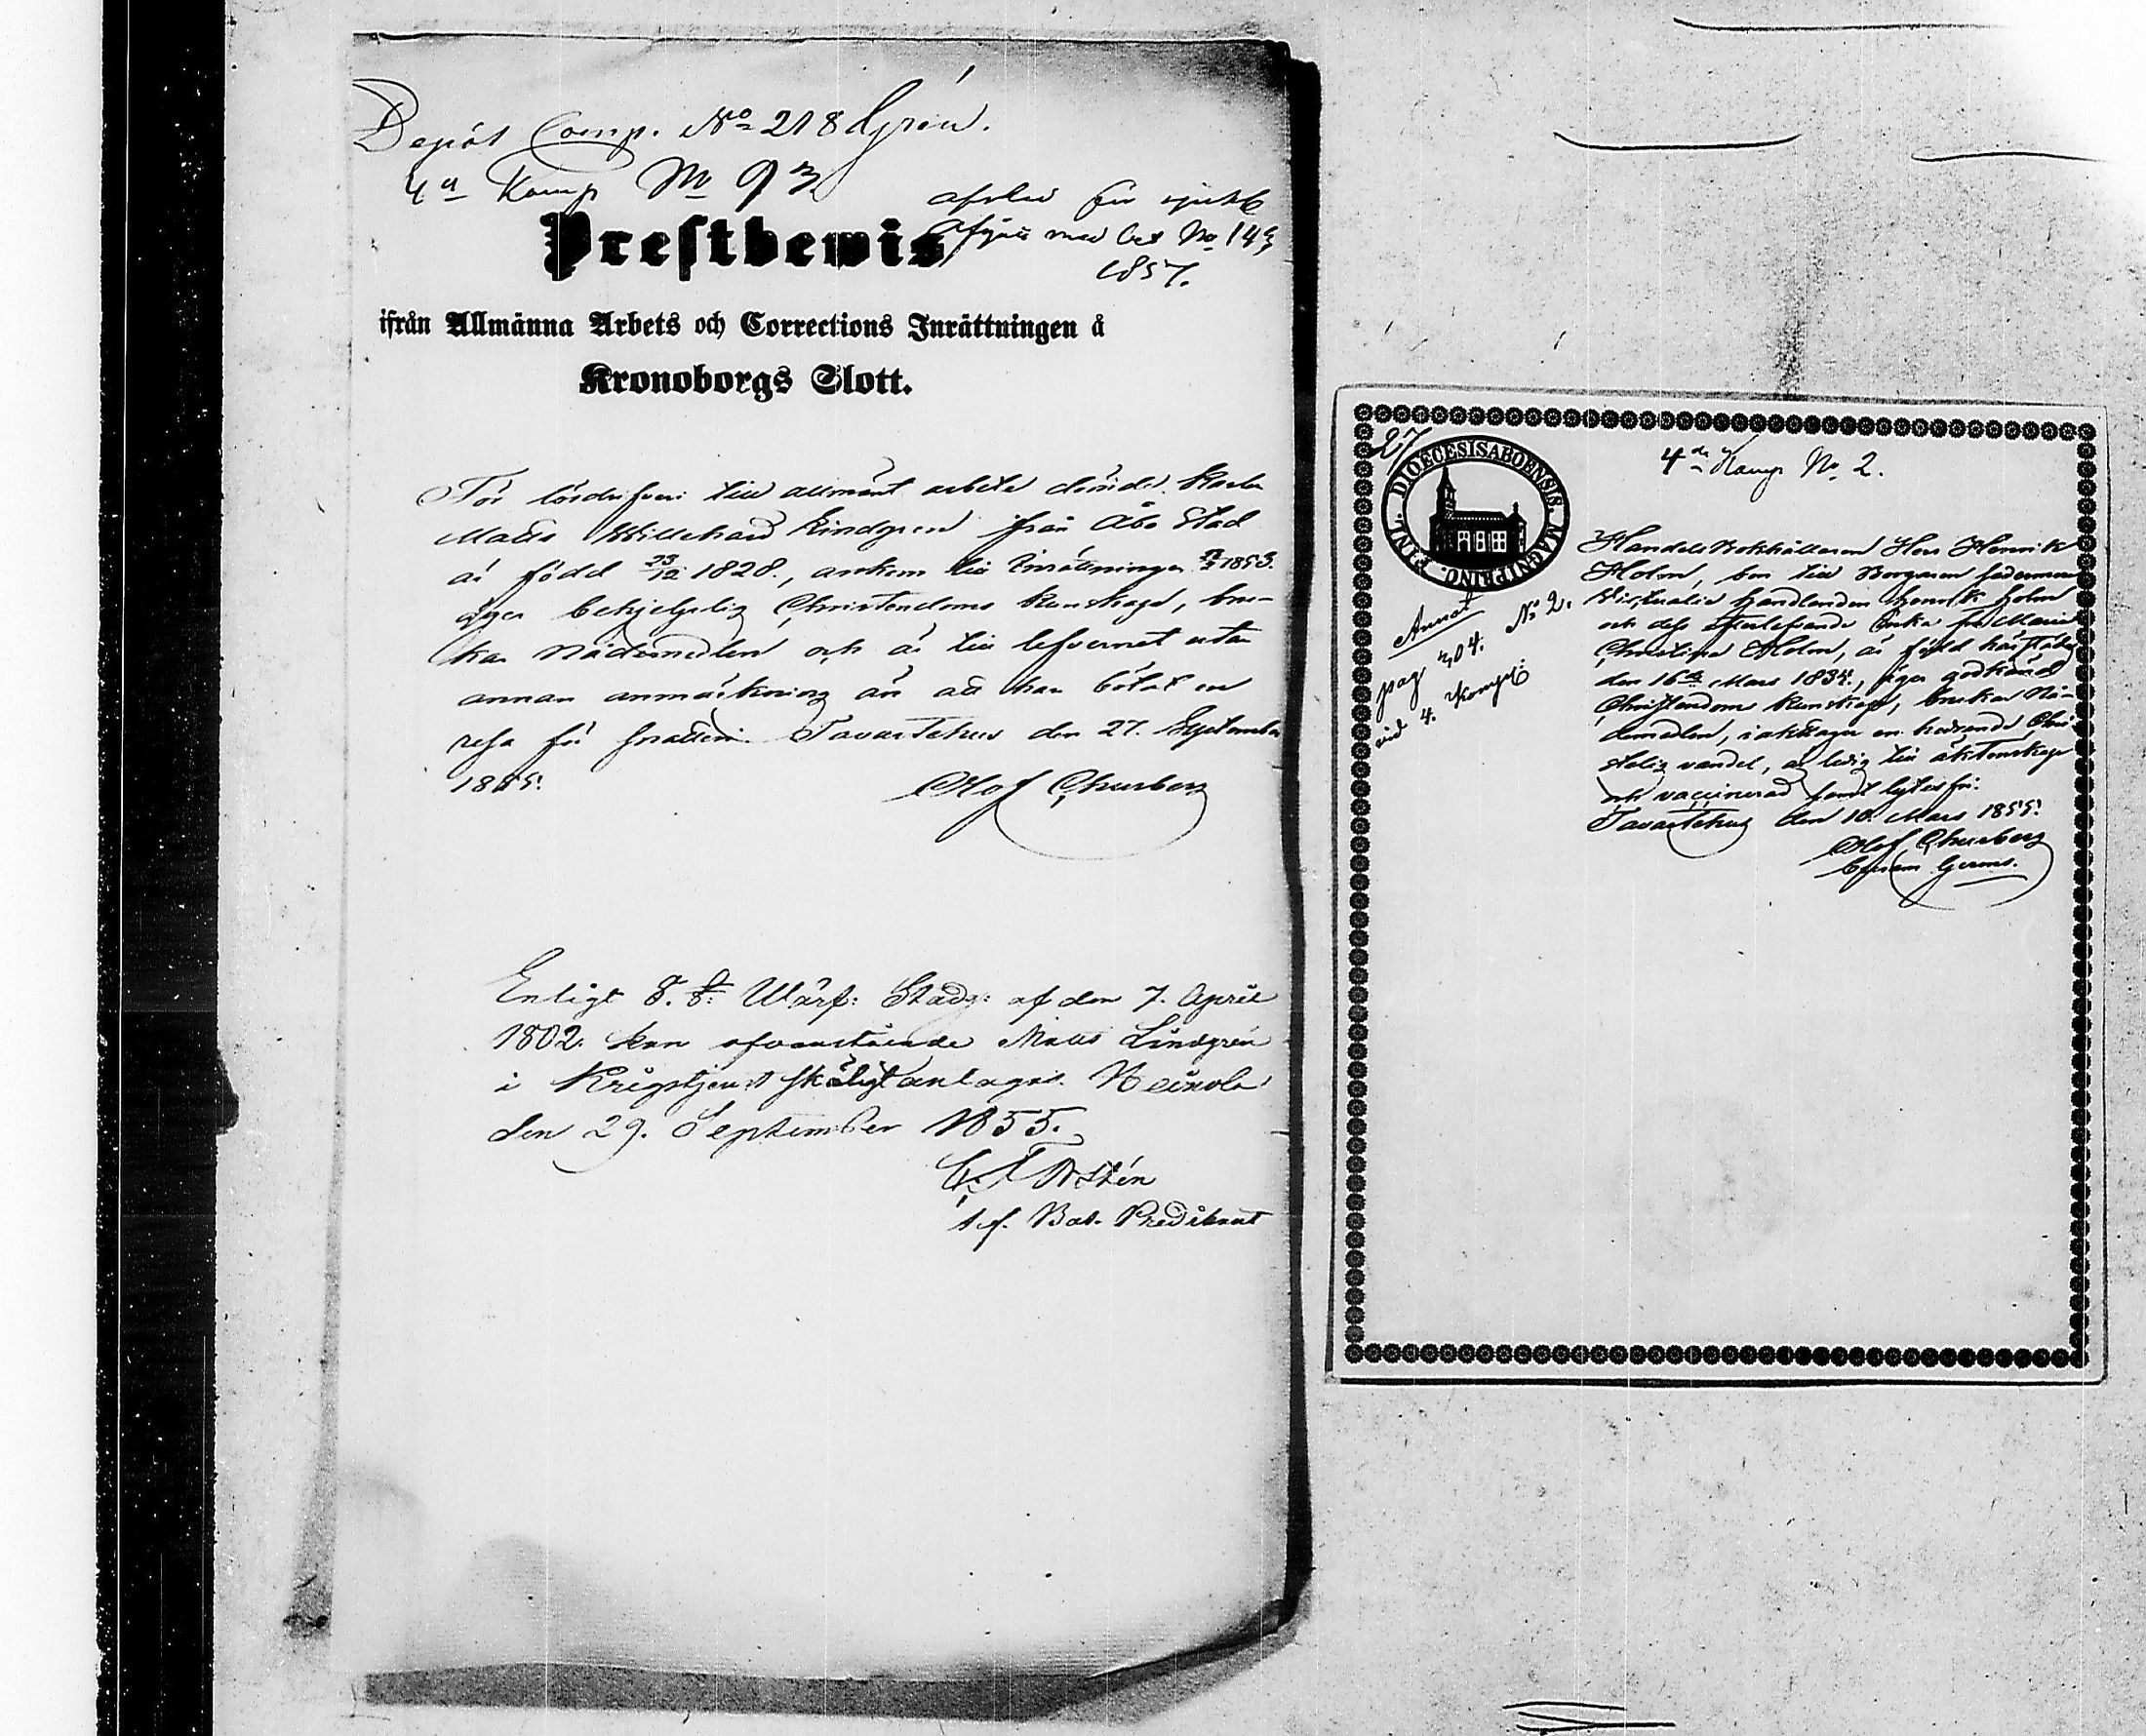 Depôt Comp. No 218 Grén.
4a Komp No 93
afsked för sjukl
Afgått med bet No 149
1857.
Prestbewis
ifrån Allmänna Arbets och Corrections Inrättningen å
Kronoborgs Slott.
För lösdrifveri till allmänt arbete dömde Karlen
Matts Willehard Lindgren ifrån Åbo Stad
är född 23/12 1828., ankom till Inrättningen 1853.
äger behjelplig Christendoms kunskap, bru-
kar Nådemedlen och är till lefvernet utan
annan anmärkning än att han bötat en
resa för snatteri. Tavastehus den 27. September
1855.
Olof Churberg
Enligt Värf: Stadg: af den 7. April
1802. kan ofvanstående Matts Lindgrén
i Krigstjenst skäligt antagas. Heinola
den 29. September 1855.
Astén
t.f. Bat. Predikant
27
DIOECESIS ABOENSIS. MAGNI PRINC. FINL.
4de Komp No. 2.
Annat
pag 304. No 2.
vid 4. Komp:
Handels Bokhållaren Herr Henrik
Holm, son till Borgaren
Victualie handlanden Henrik Holm
och dess efterlefvande Enka Fru Maria
Christina Holm, är född härstädes
den 16de Mars 1834., äger godkänd
Christendoms kunskap, brukar Nå-
demedlen, iakttager en hedrande Chri-
stelig vandel, är ledig till äktenskap
och vaccinerad samt lytesfri.
Tavastehus den 10. Mars 1855.
Olof Churberg